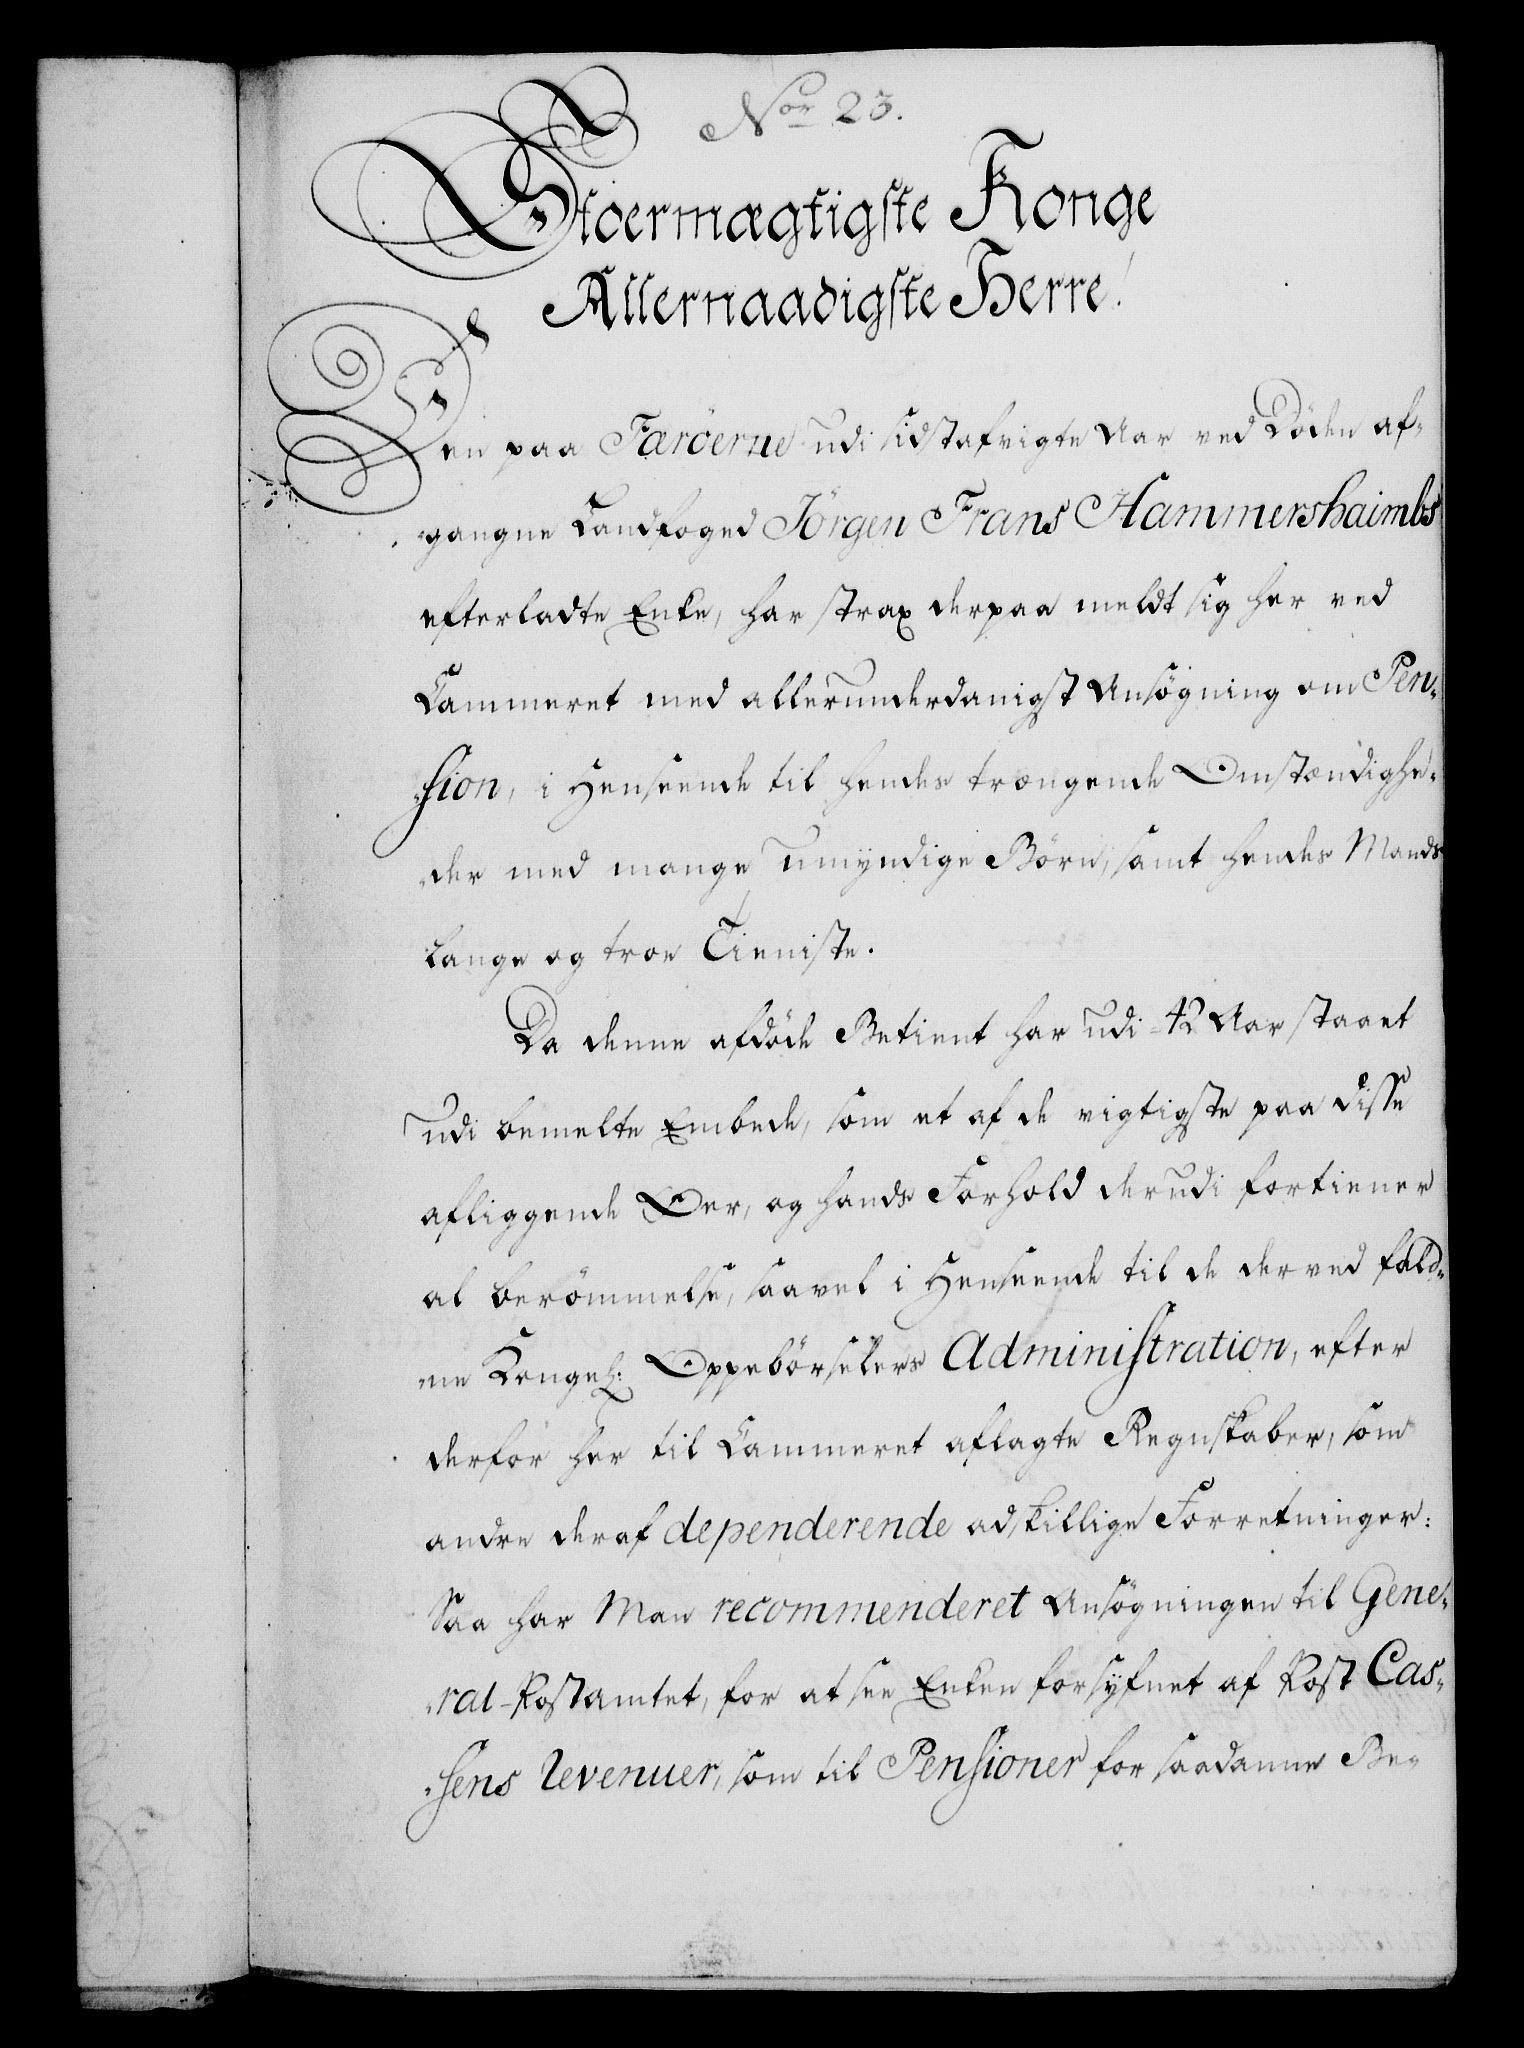 Nor 23.
Stoermægtigste Konge
Allernaadigste Herre!
Den paa Færöerne udi sidstafvigte Aar ved Döden af-
gangne Landfoged Jörgen Frans Hammershaimbs
efterladte Enke, har strax derpaa meldt sig her ved
Cammeret med allerunderdanigst Ansögning om Pen-
sion, i Henseende til hendes trængende Omstændighe-
der med mange umyndige Börn, samt hendes Mands
lange og troe Tieniste.
Da denne afdöde Betient har udi 42 Aar staaet
udi bemelte Embede, som et af de vigtigste paa disse
afliggende Öer, og hands Forhold derudi fortiener
al berömmelse, saavel i Henseende til de derved fald-
ne Kongel: Oppebörselers Administration, efter
derfor her til Cammeret aflagte Regnskaber, som
andre deraf dependerende adskillige Forretninger:
Saa har Man recommenderet Ansögningen til Gene-
ral-Postamtet, for at see Enken forsyfnet af Post Cas-
sens Revenuer, som til Pensioner for saadanne Be-